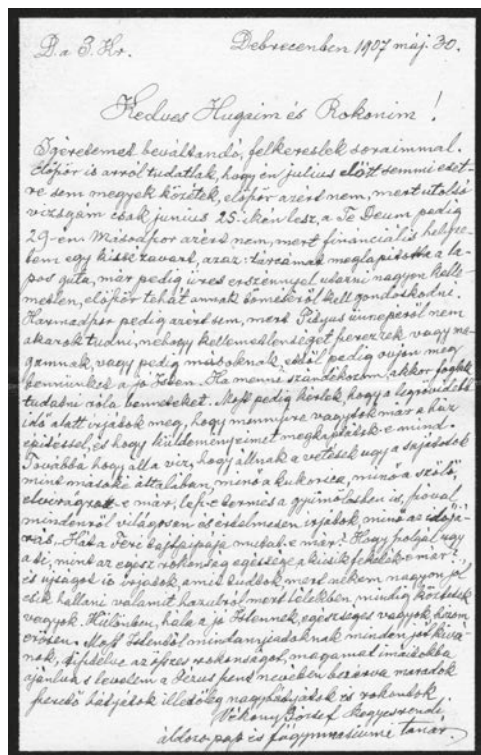 D. a J. Kr. Debrecenben 1907 máj. 30.
Kedves Hugaim és Rokonim!
Igéretemet beváltandó, felkereslek soraimmal.
Először is arról tudatlak, hogy én julius előtt semmi eset-
re sem megyek közétek, először azért nem, mert utolsó
vizsgám csak junius 25-ikén lesz, a Te Deum pedig
29-en. Másodszor azért nem, mert financiális helyze-
tem egy kissé zavart, azaz: tárcámat meglapította a la-
pos guta, már pedig üres erszénnyel utazni nagyon kelle-
metlen, először tehát annak töméséről kell gondoskodni.
Harmadszor pedig azért sem, mert Pistyus ünnepéről nem
akarok tudni, nehogy kellemetlenséget szerezzek vagy ma-
gamnak, vagy pedig másoknak, ettől pedig ovjon meg
bennünket a jó Isten. Ha menni szándékozom, akkor foglak
tudatni róla benneteket. Most pedig kérlek, hogy a legrövidebb
idő alatt irjátok meg, hogy mennyire vagytok már a ház
épitéssel, és hogy küldeményeimet megkaptátok-e mind.
Továbbá hogy áll a viz, hogy állnak a vetések ugy a sajátotok
mint másoké általában, minő a kukorica, minő a szőlő,
elvirágzott-e már, lesz-e termés a gyümölcsben is, szóval
mindenről világosan és érthetően irjatok, minő az időjá-
rás. Hát a Feri mutat-e már? Hogy szolgál ugy
a ti, mint az egész rokonság egészsége a kicsik -e már?
és ujságot is irjatok, amit tudtok mert nékem nagyon jól
esik hallani valamit hazulról mert lélekben mindig köztetek
vagyok. Különben, hála a jó Istennek, egészséges vagyok,
erősen. Most Istentől mindannyiadoknak minden jót kivá-
nok, tisztelve az összes rokonságot, magamat imáitokba
ajánlva s levelem a Jézus szent nevében bezárva maradok
szerető bátyátok illetőleg nagybátyátok és rokontok
Vékony József kegyesrendi
áldozó pap és főgymnasiumi tanár.